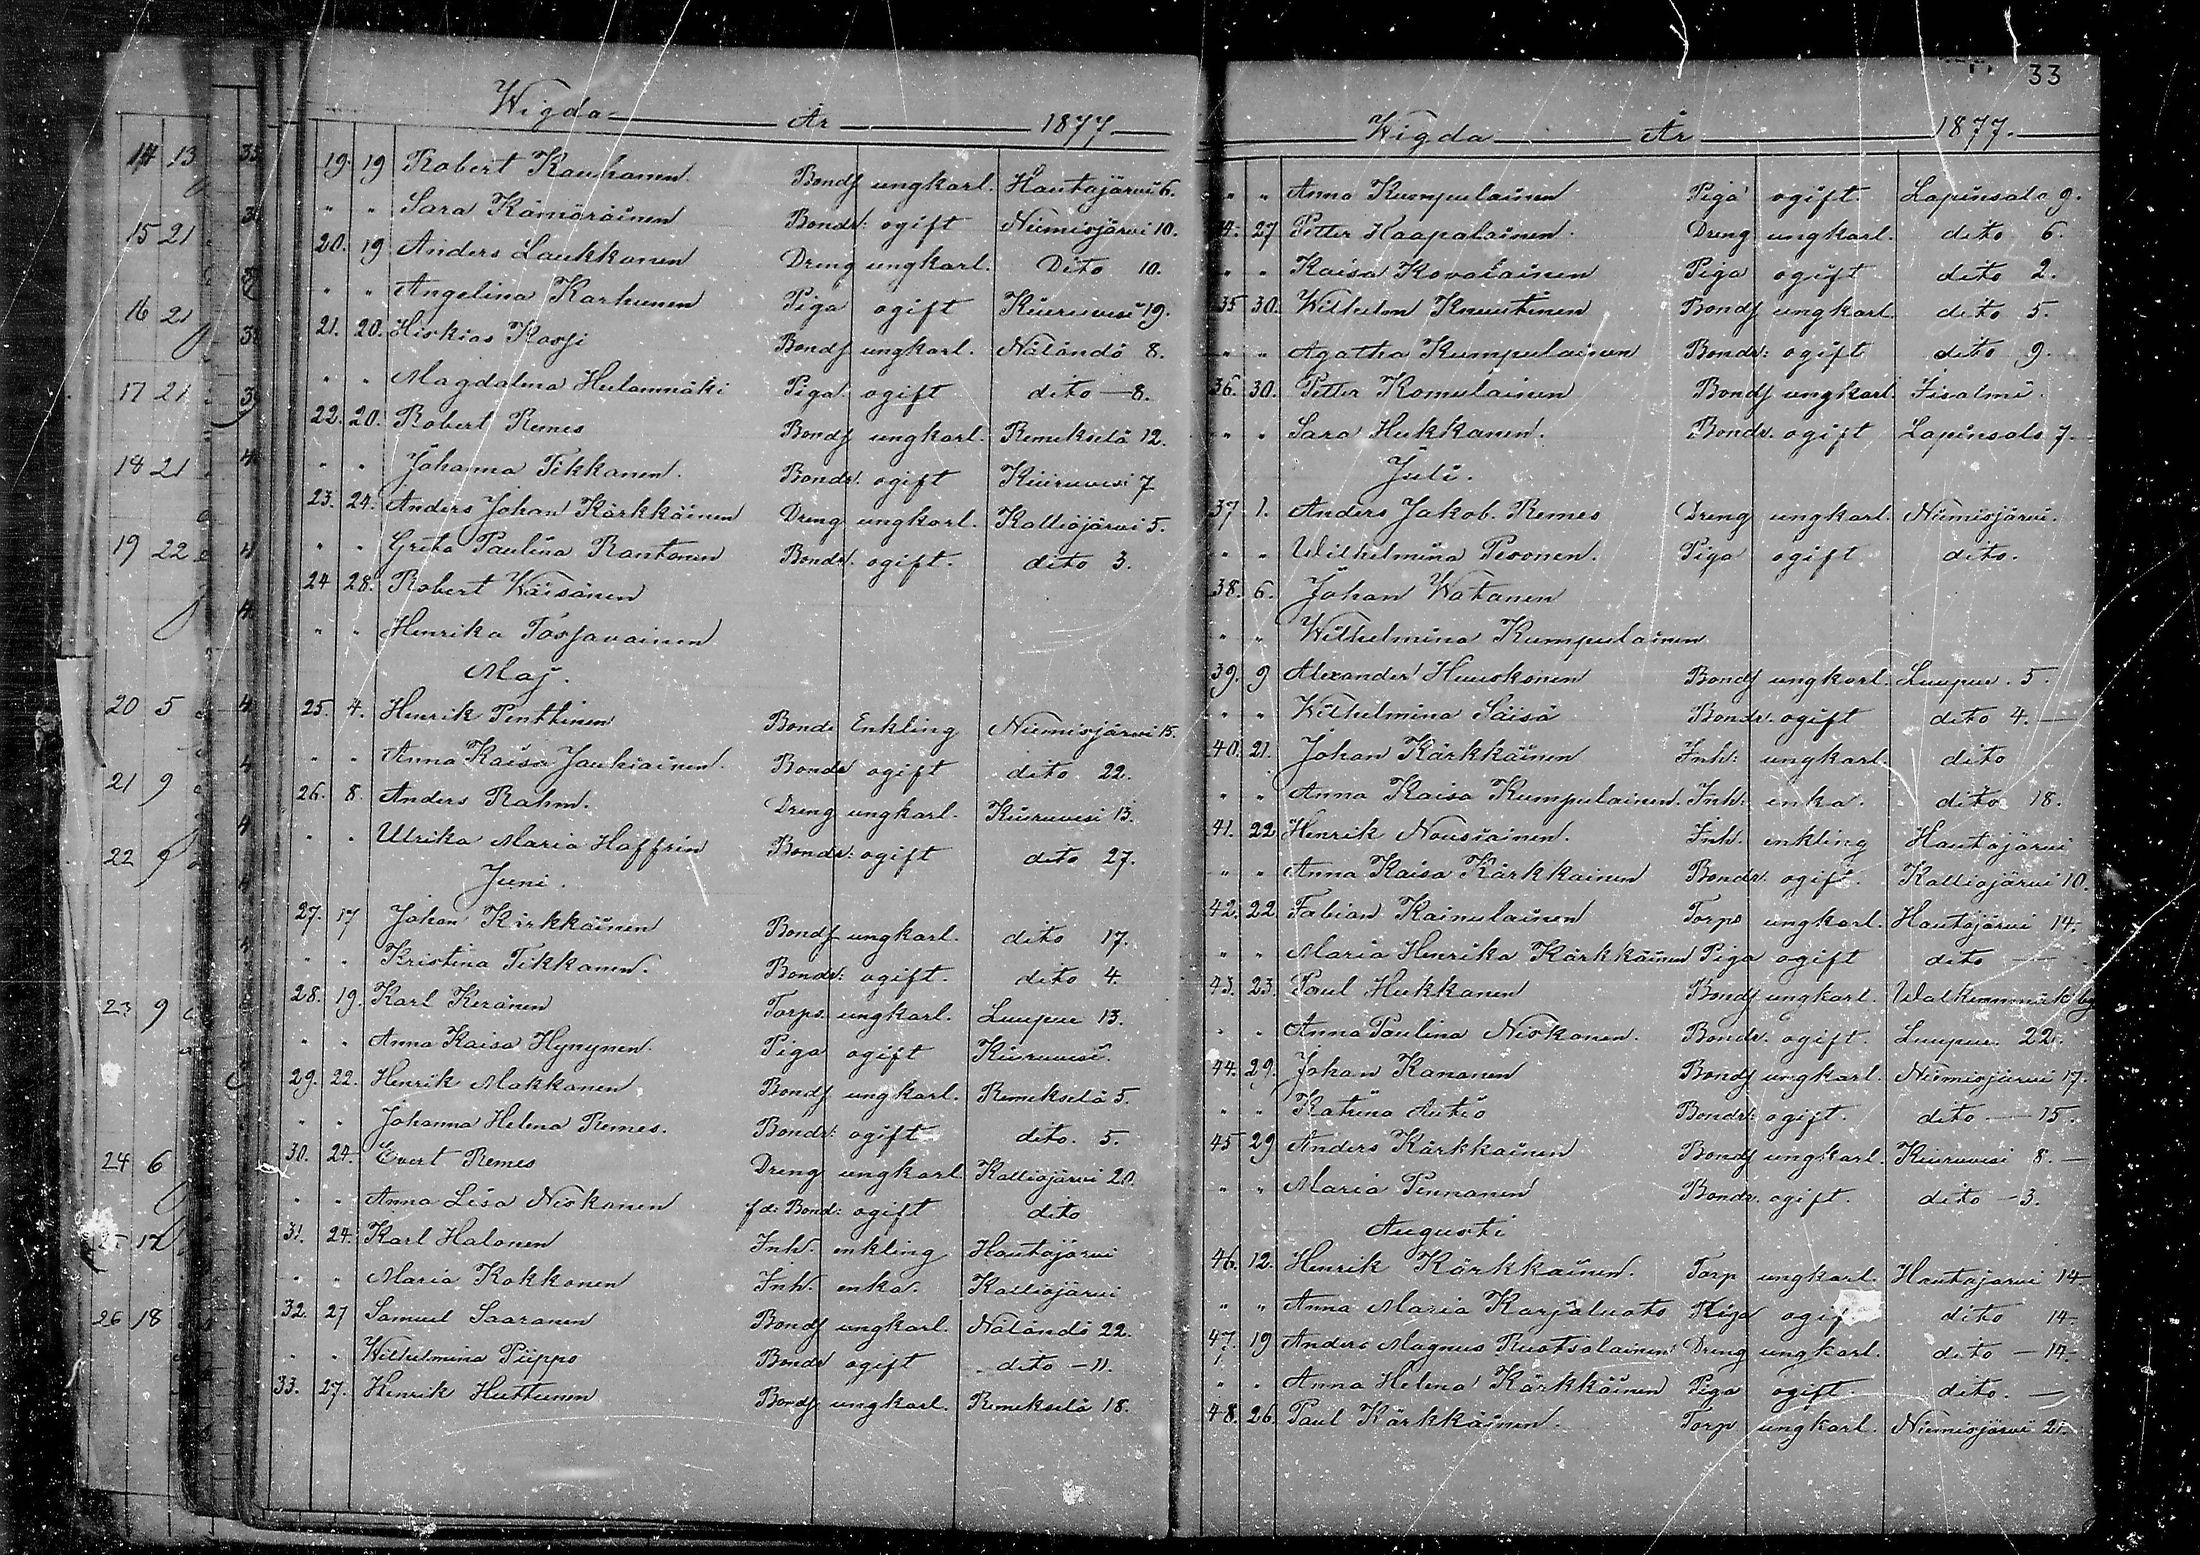 Wigda År 1877
19. 19 Robert Kauhanen. Bondf ungkarl. Hautajärvi 6.
" " Sara Kämäräinen Bondr: ogift Niemisjärvi 10.
20. 19. Anders Laukkanen Dreng ungkarl. Dito 10.
" " Angelina Karhunen Piga ogift Kiuruvesi 19.
21. 20. Hiskias Bondf ungkarl. Näländö 8.
" " Magdalena Piga ogift dito 8.
22. 20. Robert Remes Bondf ungkarl. Remekselä 12.
" " Johanna Tikkanen. Bondr. ogift Kiuruvesi 7
23. 24. Anders Johan Kärkkäinen Dreng ungkarl. Kalliojärvi 5.
" " Greta Paulina Rantonen Bondr. ogift. dito 3.
24 28. Robert Wäisänen
" " Henrika Tosjavainen
Maj.
25. 4. Henrik Penttinen Bonde Enkling Niemisjärvi 15.
" " Anna Kaisa Jauhiainen. Bondr ogift dito 22.
26. 8. Anders Rahm. Dreng ungkarl. Kiuruvesi 13.
" " Ulrika Maria Haffrin Bondr: ogift dito 27.
Juni.
27. 17 Johan Kärkkäinen Bondf ungkarl. dito 17.
" " Kristina Tikkanen. Bondr: ogift. dito 4.
28. 19. Karl Keränen Torps. ungkarl. Luupue 13.
" " Anna Kaisa Hynynen. Piga ogift Kiuruvesi.
29. 22. Henrik Makkanen Bondf ungkarl. Remekselä 5.
" " Johanna Helena Remes. Bondr: ogift dito. 5.
30. 24. Evert Remes Dreng ungkarl Kalliojärvi 20.
" " Anna Lisa Niskanen f d: Bond: ogift dito
31. 24. Karl Halonen Inh. enkling Hautajärvi
" " Maria Kokkonen Inh. enka. Kalliojärvi
32. 27 Samuel Saaranen Bondf ungkarl. Näländö 22.
" " Wilhelmina Piippo Bondr ogift dito 11.
33. 27. Henrik Huttunen Bondf. ungkarl. Remekselä 18.
33
Wigda År 1877.
" " Anna Kumpulainen Piga ogift. Lapinsalo 9.
27 Petter Haapalainen. Dreng ungkarl. dito 6.
" " Kaisa Kovalainen Piga ogift dito 2.
35 30. Wilhelm Knuutinen Bondf ungkarl. dito 5.
" " Agatha Kumpulainen Bondr: ogift dito 9.
36. 30. Petter Komulainen Bondf ungkarl. Iisalmi.
" " Sara Hukkanen. Bondr. ogift Lapinsalo 7.
Juli.
37 1. Anders Jakob. Remes Dreng ungkarl. Niemisjärvi.
" " Wilhelmina Piga ogift dito.
38. 6. Johan Watanen
" " Wilhelmina Kumpulainen
39. 9 Alexander Huuskonen Bondf ungkarl. Luupue. 5.
" " Wilhelmina Säisä Bondr. ogift dito 4.
40. 21. Johan Kärkkäinen Inh: ungkarl. dito
" " Anna Kaisa Kumpulainen. Inh: enka. dito 18.
41. 22 Henrik Nousiainen. Inh. enkling Hautajärvi
" " Anna Kaisa Kärkkainen Bondr. ogift. Kalliojärvi 10.
42. 22 Fabian Kainulainen Torps ungkarl. Hautajärvi 14.
" " Maria Henrika Kärkkäinen Piga ogift dito
43. 23. Paul Hukkanen Bondf ungkarl.
" " Anna Paulina Niskanen. Bondr. ogift. Luupue. 22.
44. 29. Johan Kananen Bondf ungkarl. Niemisjärvi 17.
" " Katrina Autio Bondr: ogift. dito 15.
45 29 Anders Kärkkainen Bondf ungkarl. Kiuruvesi 8.
" " Maria Pennanen Bondr. ogift. dito 3.
Augusti
46. 12. Henrik Kärkkäinen. Torp ungkarl. Hautajarvi 14
" " Anna Maria Karjaluoto Piga dito 14.
47. 19 Anders Magnus Ruotsalainen Dreng ungkarl. dito 14.
" " Anna Helena Kärkkäinen Piga ogift. dito.
48. 26. Paul Kärkkäinen. Torp ungkarl. Niemisjärvi 21.
14 13
15 21
16 21
17 21
18 21
19 22
20 5
21 9
22 9
23 9
24 6
26 18